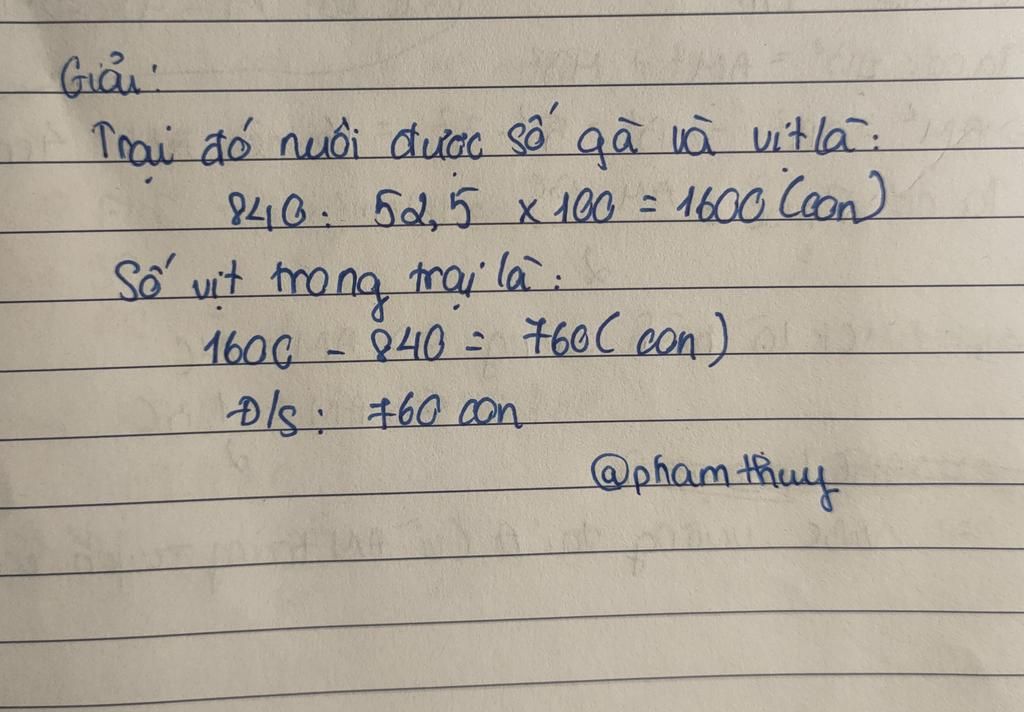 Giải:
Trại đó nuôi được số gà và vịt là:
840 : 52,5 x 100 = 1600 (con)
Số vịt trong trại là:
1600 - 840 = 760 ( con )
Đ/s : 760 con
@phamthuy